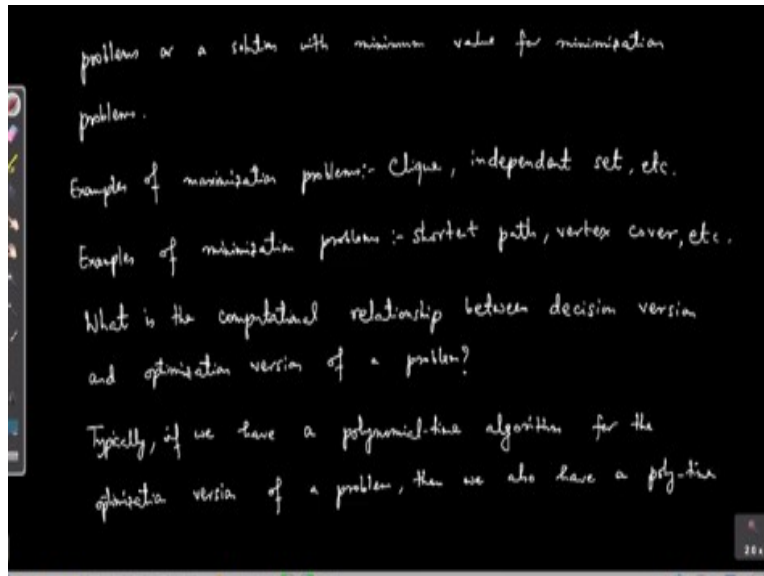 problems or a solution with minimum value for minimization
problems.
Examples of maximization problems:- Clique, independent set, etc.
Examples of minimization problems :- shortest path, vertex cover, etc.
What is the computational relationship between decision version
and optimization version of a problem?
Typically, if we have a polynomial-time algorithm for the
optimization version of a problem, then we also have a poly-time